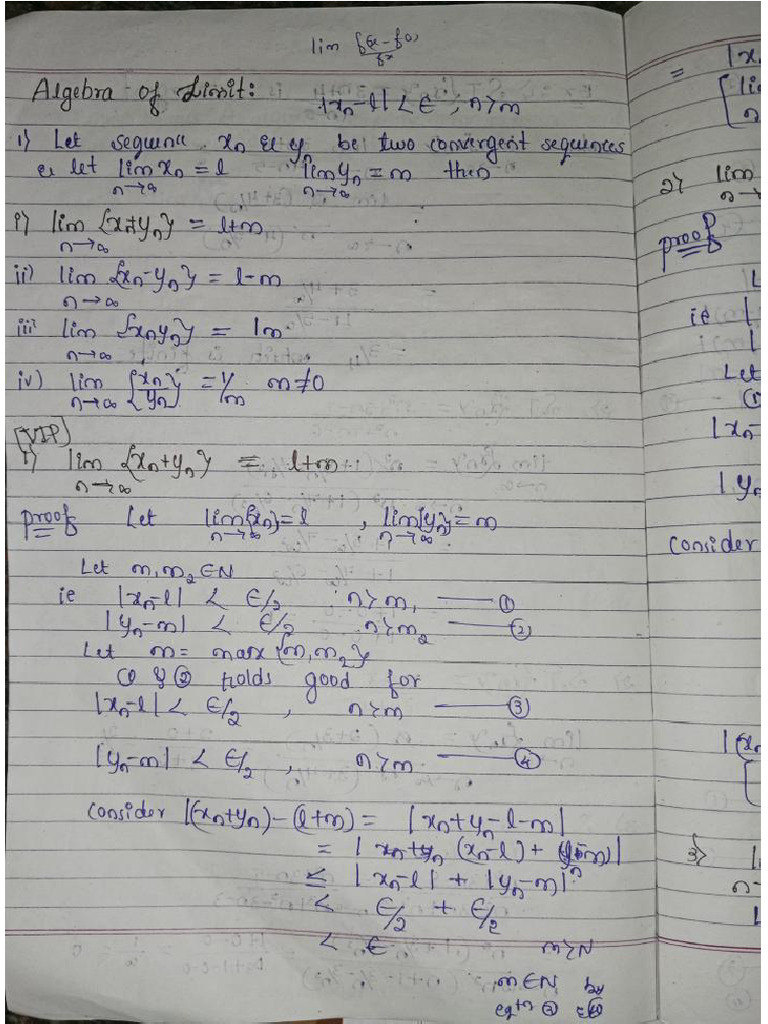 lim
Algebra of Limit: |xₙ-l| < ϵ, n>m
1) Let sequence xₙ & y be two convergent sequences
& let lim xₙ = l lim yₙ = m then
n→∞ n→∞
i) lim {xₙ+yₙ} = l+m
n→∞
ii) lim {xₙ-yₙ} = l-m
n→∞
iii) lim {xₙyₙ} = lm
n→∞
iv) lim {xₙ/yₙ} = l/m m≠0
n→∞
[VIP]
1) lim {xₙ+yₙ} = l+m
n→∞
proof Let lim{xₙ}=l , lim{yₙ}=m
n→∞ n→∞
Let m,m₂∈N
ie |xₙ-l| < ϵ/2 n>m, — ①
|yₙ-m| < ϵ/2 n>m₂ — ②
Let m= max{m,m₂}
① & ② holds good for
|xₙ-l| < ϵ/2 , n>m — ③
|yₙ-m| < ϵ/2 , n>m — ④
consider |(xₙ+yₙ)-(l+m) = |xₙ+yₙ-l-m|
= | (xₙ-l) + (yₙ-m)|
≤ |xₙ-l| + |yₙ-m|
< ϵ/2 + ϵ/2
< ϵ
= |x
2) lim
proof
L
ie |
L
Let
|xₙ-
|yₙ
consider
3)